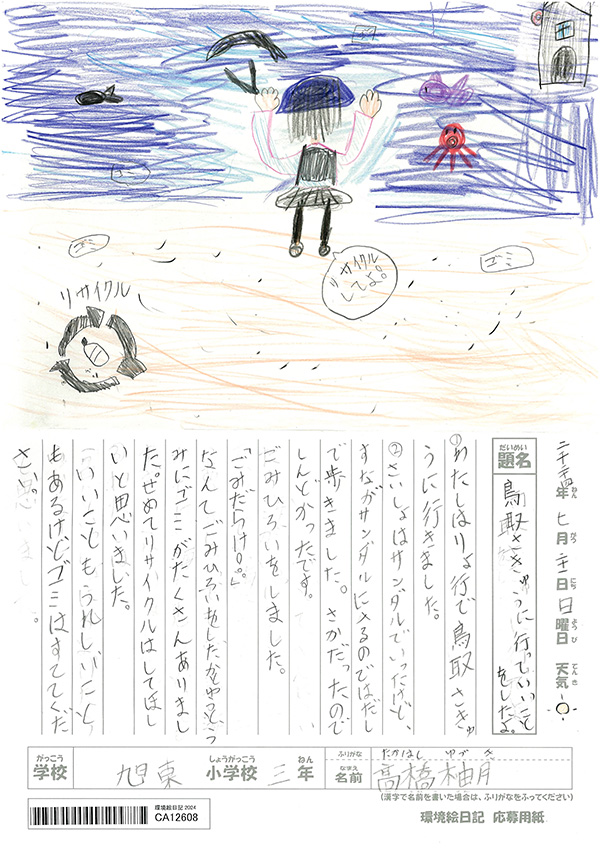 ゴミ
ゴミ
ゴミ
ゴミ
リサイクル
してよ。
リサイクル
だいめい
題名
鳥取さきゅうに行っていいこと
をしたよ。
年 ねん 七月 がつ 日 にち 日曜日 ようび 天気 てんき
①わたしはりょ行で鳥取さきゅ
うに行きました。
②さいしょはサンダルでいったけど、
すながサンダルに入るのではだし
で歩きました。さかだったので
しんどかったです。
ごみひろいをしました。
「ごみだらけ。。」
なんでごみひろいをしたかやっとう
みにゴミがたくさんありまし
た。せめてリサイクルはしてほし
いと思いました。
いいこともうれしいこと
もあるけどゴミはすててくだ
さい。
がっこう
学校
旭東
しょうがっこう
小学校
三
ねん
年
ふりがな
たかはし ゆづき
なまえ
名前
髙橋柚月
(漢字で名前を書いた場合は、ふりがなをふってください)
環境絵日記 2024
CA12608
環境絵日記 応募用紙